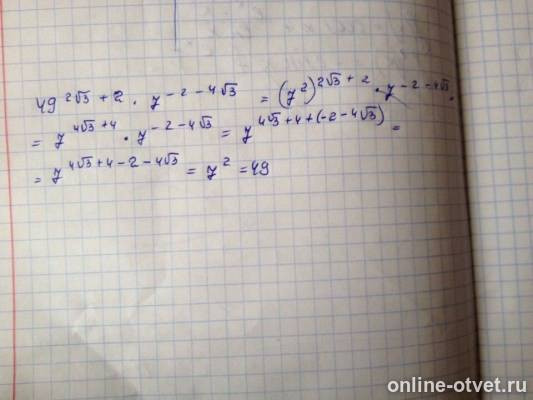 49^(2√3 + 2) · 7^(-2-4√3) = (7^2)^(2√3 + 2) · 7^(-2-4√3) =
= 7^(4√3+4) · 7^(-2-4√3) = 7^(4√3+4+(-2-4√3)) =
= 7^(4√3+4-2-4√3) = 7^2 = 49
online-otvet.ru